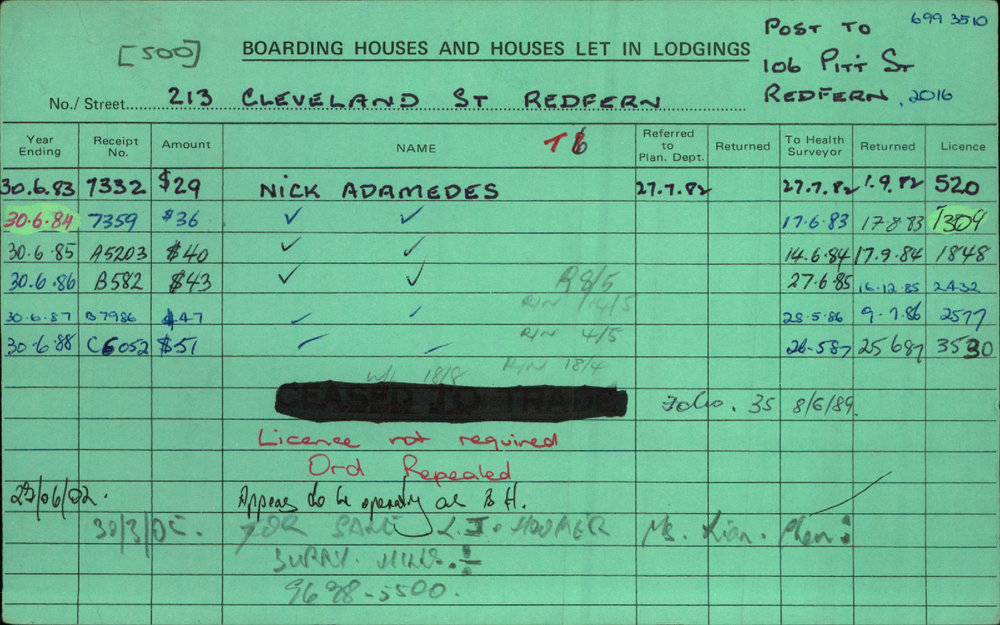 [500]
BOARDING HOUSES AND HOUSES LET IN LODGINGS
POST TO 699 3510
106 PITT ST
REDFERN, 2016
No./ Street 213 CLEVELAND ST REDFERN
Year Ending Receipt No. Amount NAME Referred to Plan. Dept. Returned To Health Surveyor Returned Licence
30.6.83 7332 $29 NICK ADAMEDES 27.7.82 27.7.82 1.9.82 520
30.6.84 7359 $36 ✓ ✓ 17.6.83 17.8.83 1309
30.6.85 A5203 $40 ✓ ✓ 14.6.84 17.9.84 1848
30.6.86 B582 $43 ✓ ✓ R8/5 27.6.85 16.12.85 2432
R/N 14/5
30.6.87 B7986 $47 ✓ ✓ 28.5.86 9.7.86 2577
R/N 4/5
30.6.88 C6052 $51 28.587 25687 3530
R/N 18/4
18/8
CEASED TO TRADE Folio. 35 8/6/89
Licence not required
Ord Repealed
Appears to be operating as B H.
30/3/05. FOR SALE Ms.
SURRY HILLS.
9698-5500.